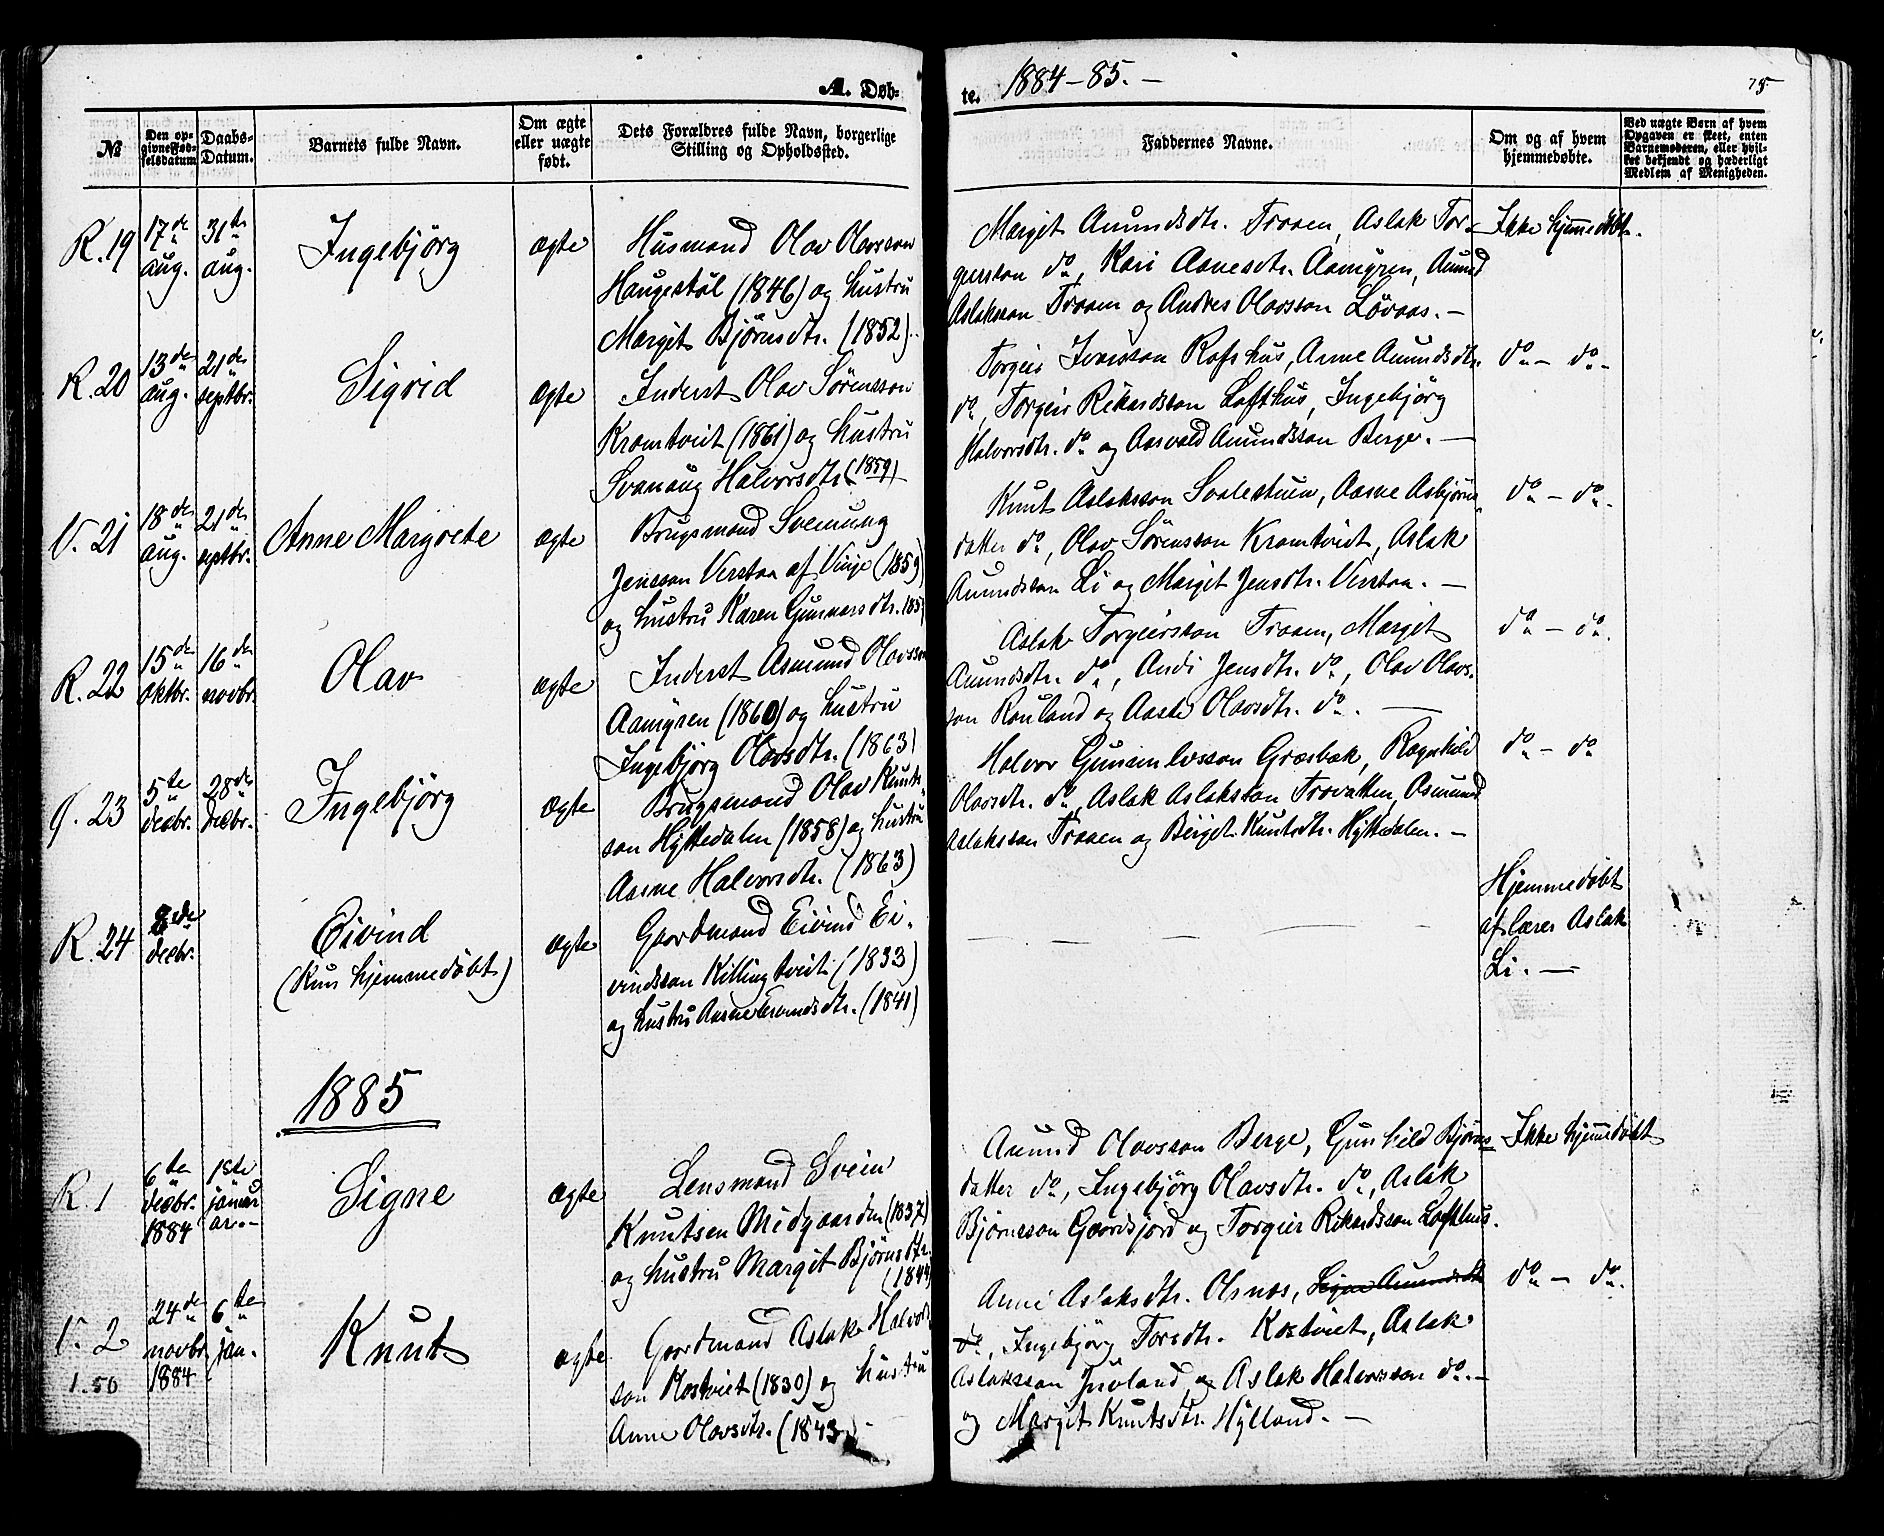 A. Døb-
te. 1884-85. -
75
№
Den op-
givne Fød-
selsdatum
Daabs-
Datum.
Barnets fulde Navn.
Om ægte
eller uægte
født.
Dets Forældres fulde Navn, borgerlige
Stilling og Opholdssted.
Faddernes Navne.
Om og af hvem
hjemmedøbte.
Ved uægte Børn af hvem
Opgaven er skeet, enten
Barnemoderen, eller hvil-
ket bekjendt og hæderligt
Medlem af Menigheden.
R. 19
17de
aug.
31te
aug.
Ingebjörg
ægte
Husmand Olav Olavsson
Haugestöl (1846) og hustru
Margit Björnsdtr. (1852)
Margit Aamundsdtr. Traaen, Aslak Tor-
geirsson do, Kari Aanesdtr. Aamyren, Aamund
Aslaksson Traaen og Andres Olavsson Lövaas. -
Ikke hjemmedöbt.
R. 20
13de
aug.
21de
septbr.
Sigrid
ægte
Inderst Olav Sörensson
Kromtveit (1861) og hustru
Svanaug Halvorsdtr. (1859)
Torgeir Ivarsson Rafshus, Anne Aamundsdtr.
do, Torgeir Rikardsson Lofthus, Ingebjörg
Halvorsdtr. do og Aasvald Aamundsson Berge. -
do - do -
V. 21
18de
aug.
21de
septbr.
Anne Margrete
ægte
Brugsmand Sveinung
Jensson Verstaa af Vinje (1859)
og hustru Karen Gunnarsdtr. 185
Knut Aslaksson Svalestuen, Aasne Asbjörns-
datter do, Olav Sörensson Kromtveit, Aslak
Aamundsson Li og Margit Jensdtr. Verstaa. -
do - do.
R. 22
15de
oktbr.
16de
novbr.
Olav
ægte
Inderst Asmund Olavsson
Aamyren (1860) og hustru
Ingebjörg Olavsdtr. (1863)
Aslak Torgeirsson Traaen, Margit
Aamundsdtr. do, Andi Jensdtr. do, Olav Olavs-
son Rauland og Aaste Olavsdtr. do. -
do - do.
G. 23
5te
decbr.
28de
decbr.
Ingebjörg
ægte
Brugsmand Olav Knuts-
son Hyttedalen (1858) og hustru
Aasne Halvorsdtr. (1863)
Halvor Gunnulvsson Græsbæk, Ragnhild
Olavsdtr. do, Aslak Aslaksson Trovatten, Osmund
Aslaksson Traaen og Birgit Knutsdtr. Hyttedalen. -
do - do
R. 24
8de
decbr.
Eivind
(Kun hjemmedöbt)
ægte
Gaardmand Eivind Ei-
vindsson Killingtveit (1833)
og hustru Aasne Evendsdtr. (1841)
Hjemmedöbt
af lærer Aslak
Li. -
1885
R. 1
6te
decbr.
1884
1ste
janu-
ar. -
Signe
ægte
Lensmand Svein
Knutsen Midgaarden (1837)
og hustru Margit Björnsdtr.
(1844
Aamund Olavsson Berge, Gunhild Björns-
datter do, Ingebjörg Olavsdtr. do, Aslak
Björnsson Gaardsjord og Torgeir Rikardsson Lofthus.
Ikke hjemmedöbt
V. 2
1.50
24de
novbr.
1884
6te
jan.
Knut
ægte.
Gaardmand Aslak Halvors-
son Kostveit (1830) og hustru
Anne Olavsdtr. (1843) -
Anne Aslaksdtr. Olsnes, Signe Aamundsdtr.
do, Ingebjörg Torsdtr. Kostveit, Aslak
Aslaksson Juvland, og Aslak Halvorsson do. -
og Margit Knutsdtr. Hylland. -
do - do.